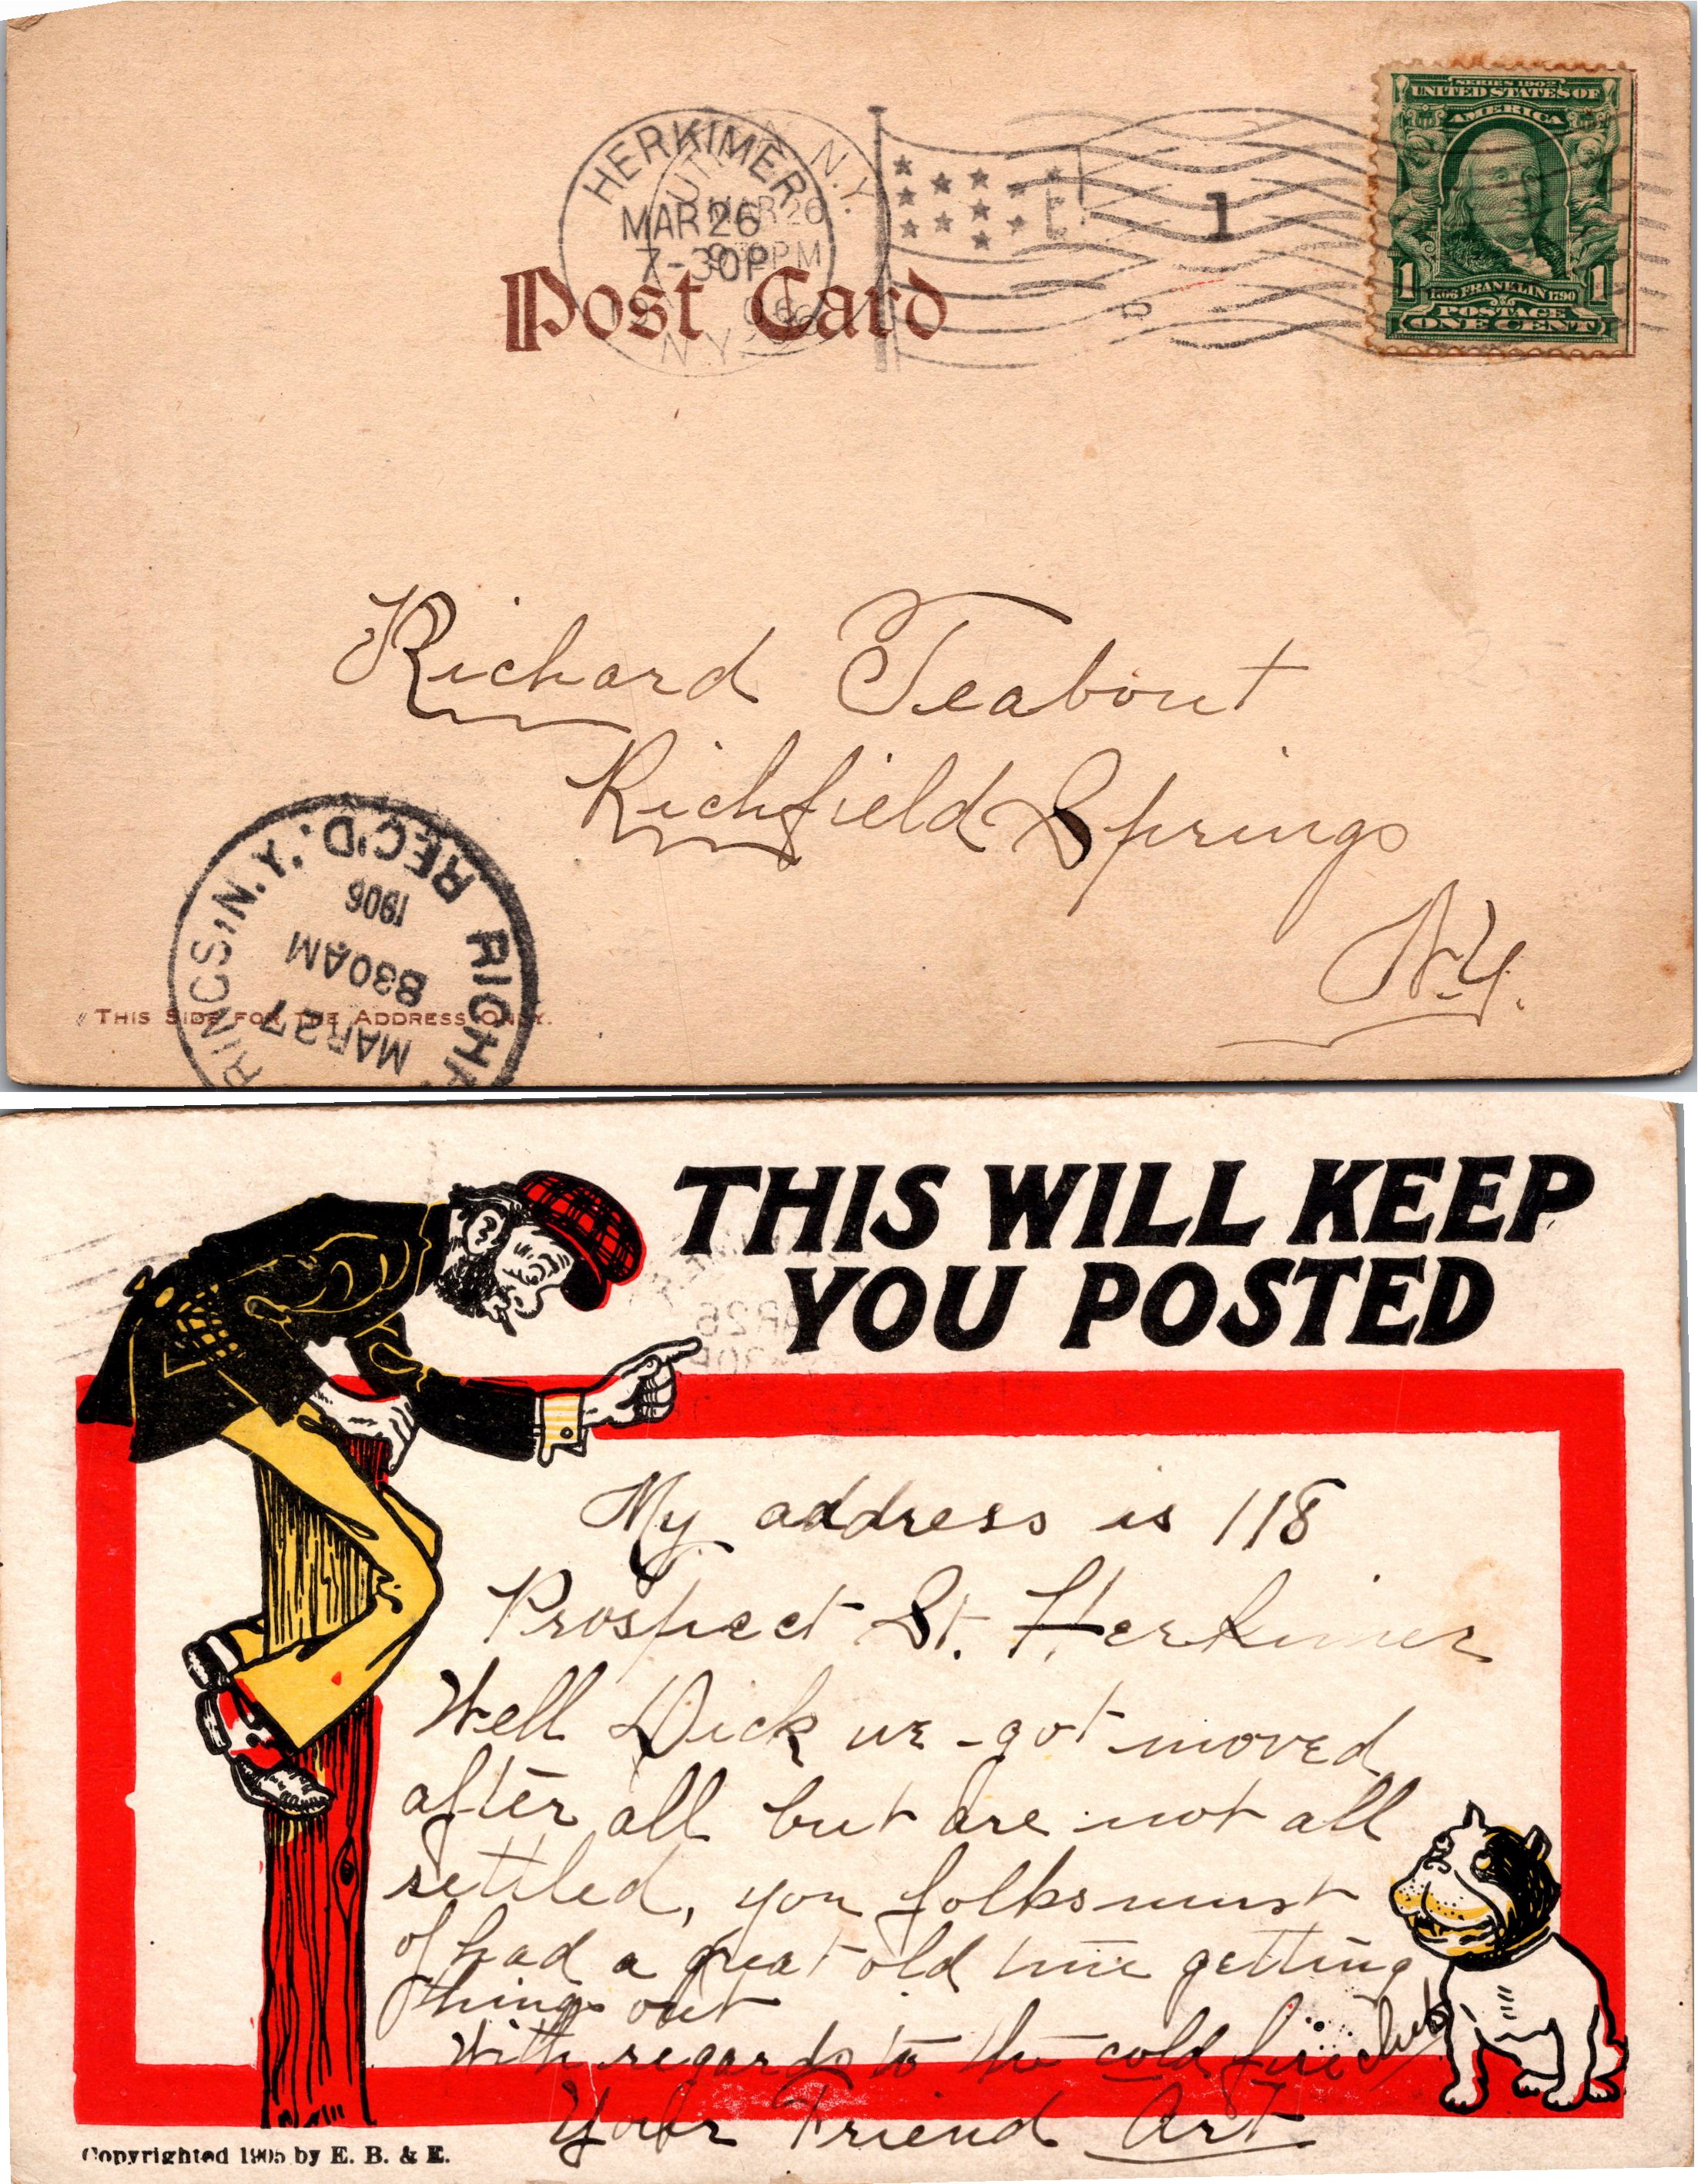 SERIES 1902
UNITED STATES OF
AMERICA
1706 FRANKLIN 1790
1 1
POSTAGE
ONE CENT
HERKIMER
N.Y.
MAR 26
7-30P
MAR 26
PM
N.Y.
1
Post Card
Richard Teabout
Richfield Springs
N.Y.
RICH RINGS N.Y. REC'D.
MAR 27
830AM
1906
THIS SIDE FOR THE ADDRESS ONLY.
THIS WILL KEEP
YOU POSTED
My address is 118
Prospect St. Herkimer
Well Dick we got moved
after all but are not all
settled, you folks must
of had a great old time getting
things out
With regards to the cold fire club
Your Friend Art
Copyrighted 1905 by E. B. & E.